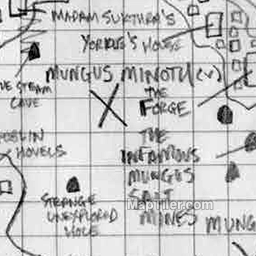 MADAM SUKTHRA'S
YORKUS'S HOUSE
MUNGUS MINOTU(CV)
THE STEAM
CAVE
X
THE
FORGE
GOBLIN
HOVELS
THE
INFAMOUS
MUNGUS
SALT
MINES
STRANGE
UNEXPLORED
HOLE
MapTiler.com
MUNG